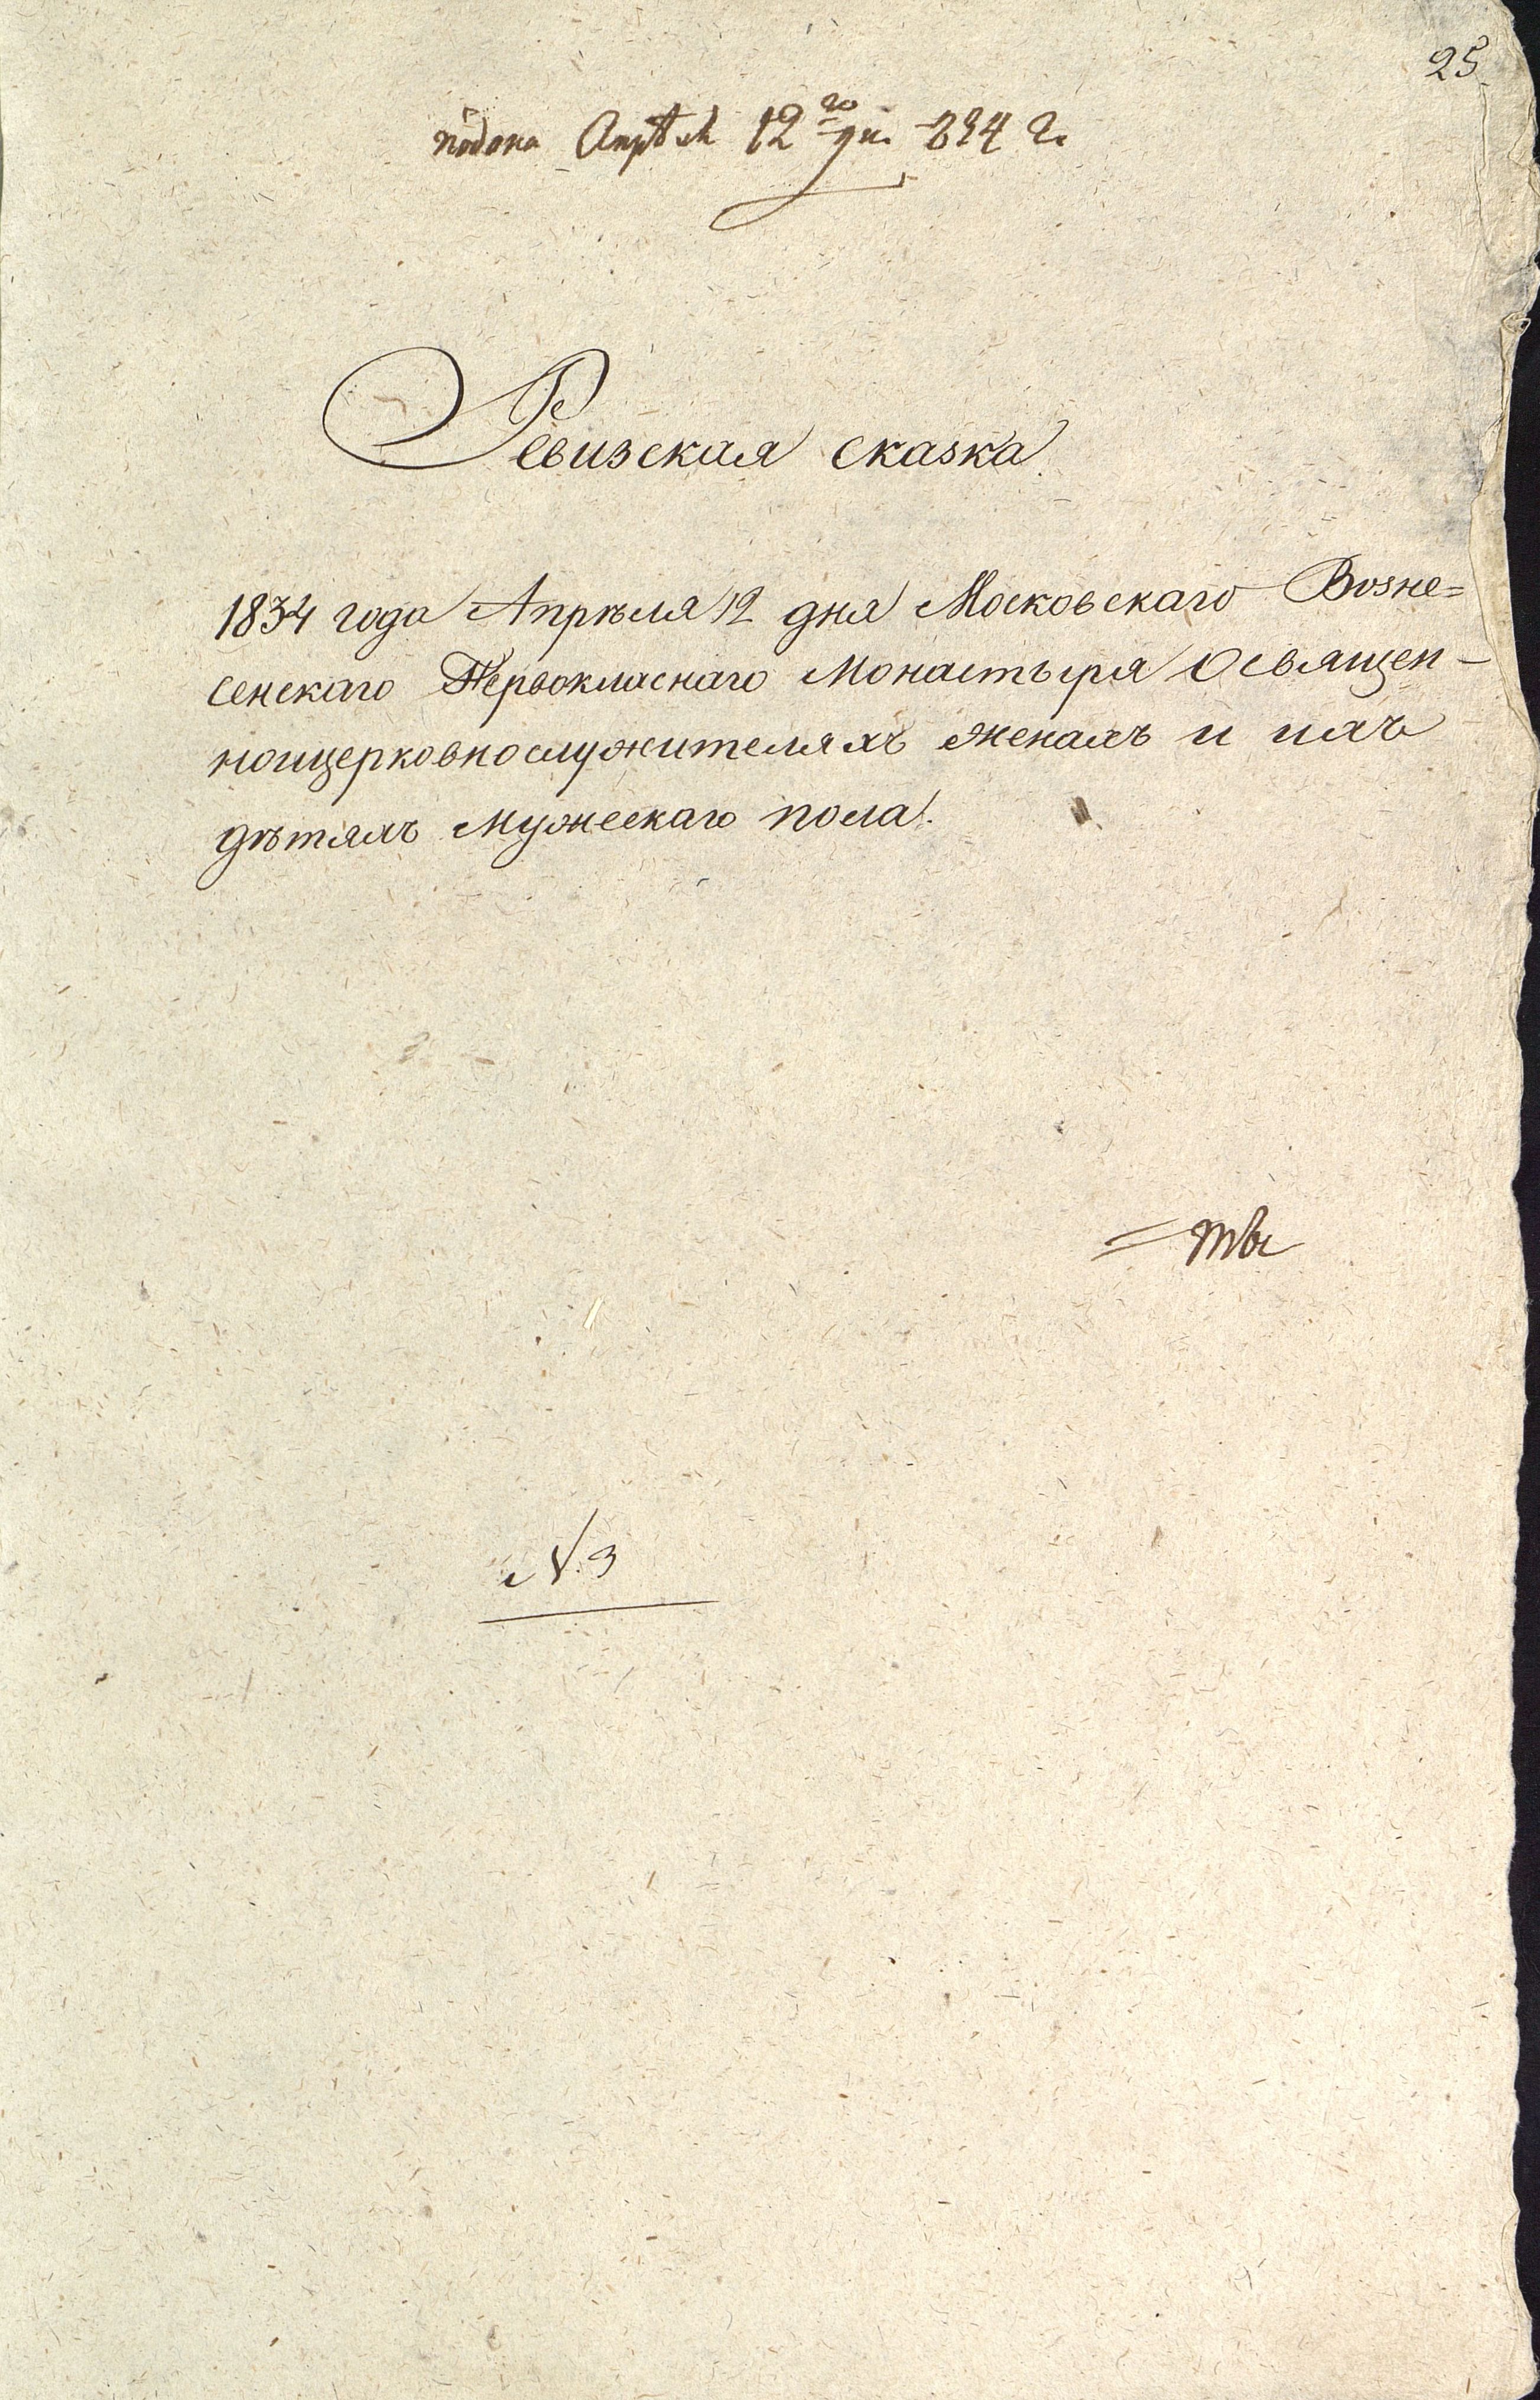 25
подана Апрѣля 12го дн. 834 г.
Ревизская сказка
1834 года Апрѣля 12 дня Московскаго Возне=
сенскаго Первокласнаго Монастыря Освящен-
ноицерковнослужителяхъ женахъ и ихъ
дѣтяхъ Мужескаго пола.
N. 3